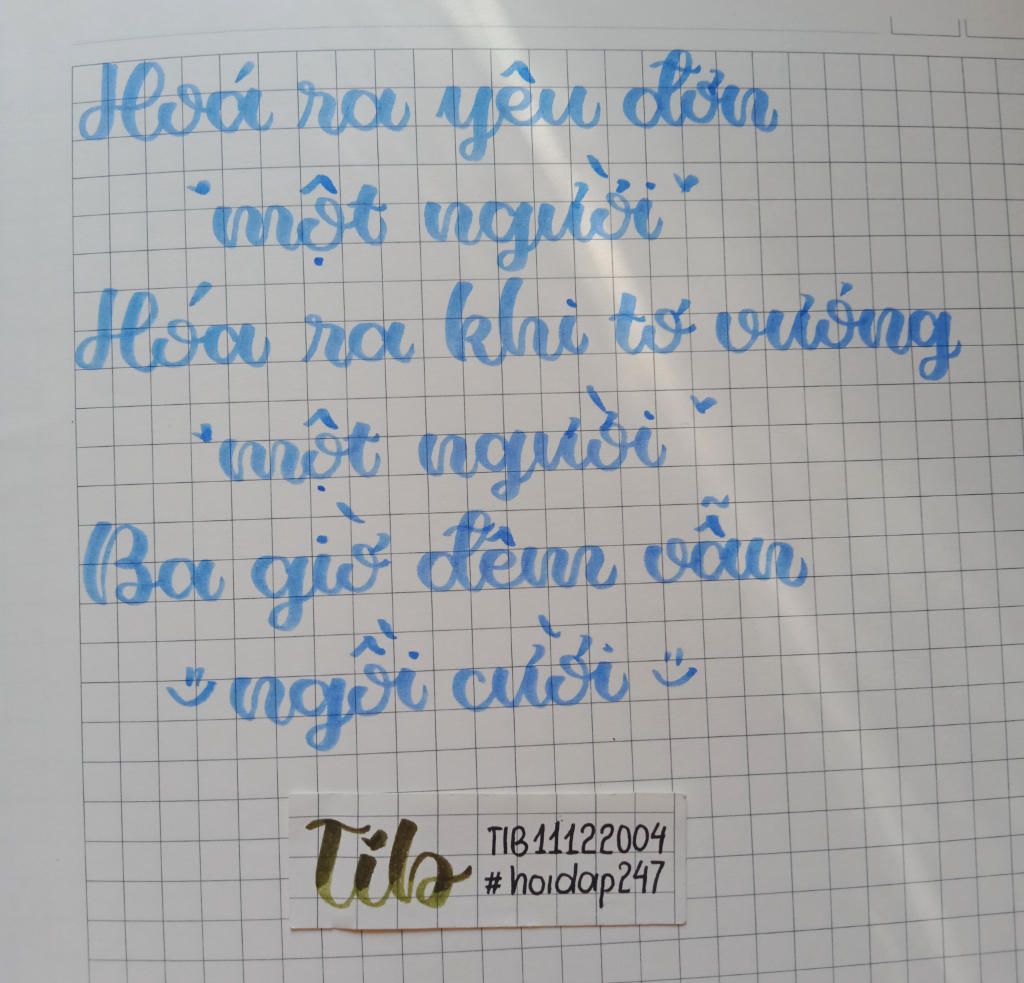 Hoá ra yêu đơn
"một người"
Hóa ra khi tơ vướng
"một người"
Ba giờ đêm vẫn
ngồi cười
Tib
TIB11122004
#hoidap247